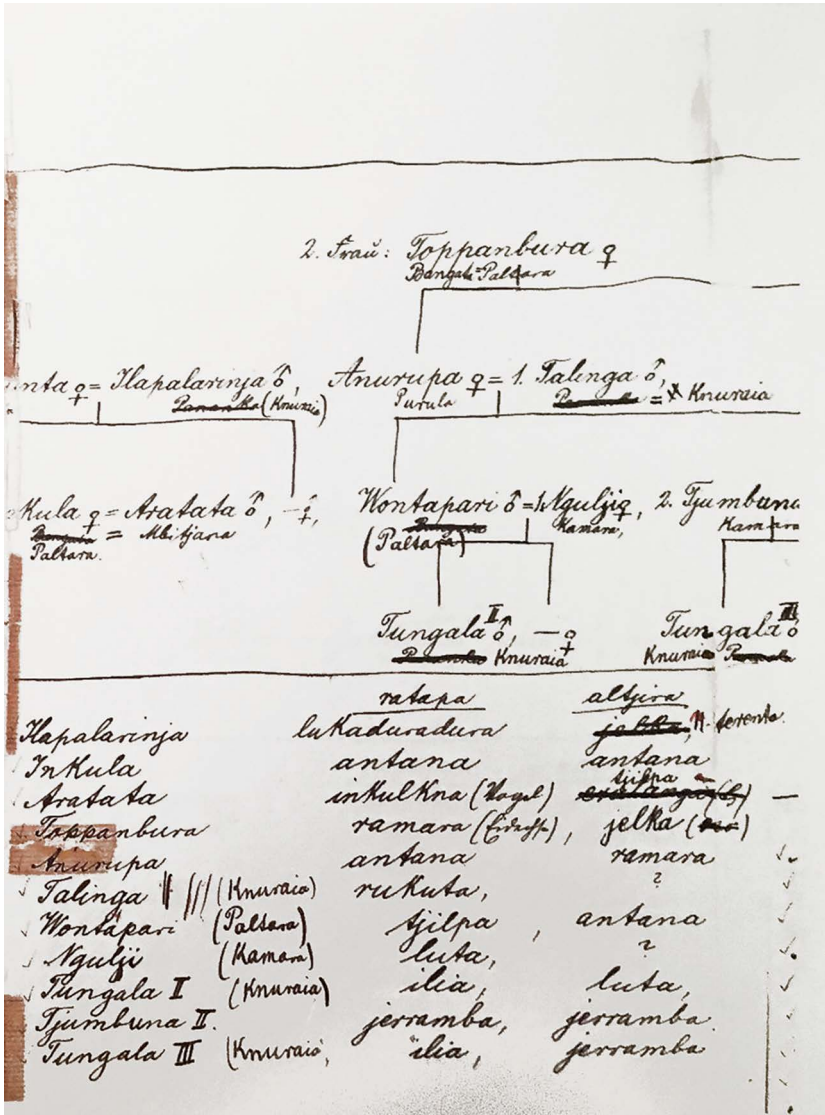 2. Frau: Toppanbura ♀
Bangata=Paltara
nta ♀ = Ilapalarinja ♂, Anurupa ♀ = 1. Talinga ♂,
Pananka (Knuraia) Purula = Knuraia
Kula ♀ = Aratata ♂, -♀, Wontapari ♂ = 1. Ngulji ♀, 2. Tjumbuna
= Mbitjana Kamara, Kamara
Paltara. (Paltara)
Tungala II ♂, — ♀ Tungala III ♂
Knuraia Knuraia
ratapa altjira
Ilapalarinja lukaduradura jelka, terenta.
Inkula antana antana
tjilpa
Aratata inkulkna (Vogel) —
Toppanbura ramara (Eidechse), jelka
Anurupa antana ramara
Talinga II /// (Knuraia) rukuta, ?
Wontapari (Paltara) tjilpa, antana
Ngulji (Kamara) luta, ?
Tungala II (Knuraia) ilia, luta,
Tjumbuna II. jerramba, jerramba
Tungala III (Knuraia, ilia, jerramba